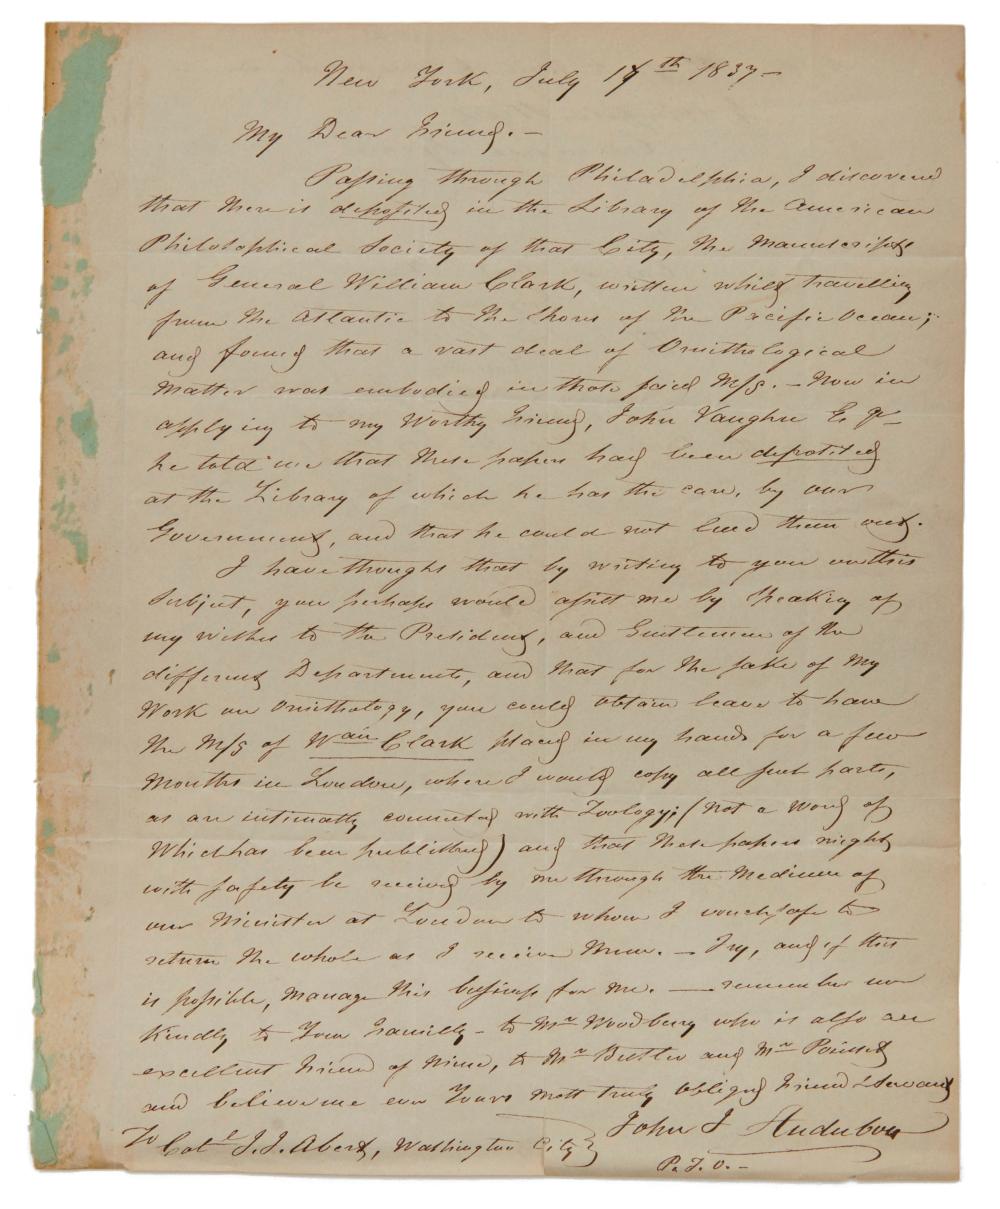 New York, July 17th 1837 –
My Dear Friend. –
Passing through Philadelphia, I discovered
that there is deposited in the Library of the American
Philosophical Society of that City, the Manuscripts
of General William Clark, written whilst travelling
from the Atlantic to the Shores of the Pacific Ocean;
and found that a vast deal of Ornithological
Matter was embodied in those said M/S. – Now in
applying to my Worthy Friend, John Vaughn Esqr –
he told me that these papers had been deposited
at the Library of which he has the care, by our
Government, and that he could not lend them out.
I have thought that by writing to you on this
Subject, you perhaps would assist me by Speaking of
my wishes to the President, and Gentlemen of the
different Departments, and that for the sake of My
Work on Ornithology, you could obtain leave to have
the M/S of Wam Clark placed in my hands for a few
Months in London, where I would copy all such parts,
as are intimately connected with Zoology; (Not a Word of
Which has been published) and that these papers might
with safety be received by me through the Medium of
our Minister at London to whom I vouchsafe to
return the whole as I receive them. – Try, and if this
is possible, Manage this business for me. — remember me
Kindly to Your Familly – to Mr Woodbury who is also an
excellent friend of Mine, to Mr Butler and Mr Poinsett
and believe me ever Yours Most truly obliged friend & Servant
John J Audubon
To Colel J. J. Abert, Washington City
P. T. O. –